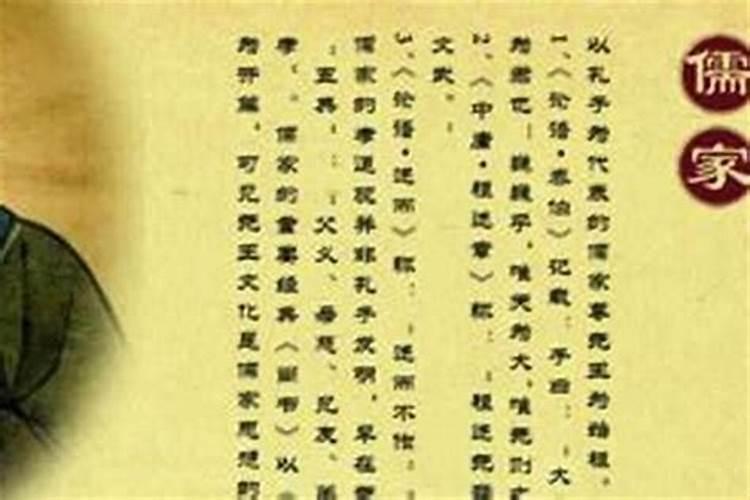 儒家
以孔子为代表的儒家尊尧王为始祖。
1、《论语·泰伯》记载:子曰:“大
为君也!巍巍乎,唯天为大,唯尧则
2、《中庸·祖述章》称:“祖述尧
文武。”
3、《论语·述而》称:“述而不作
儒家的孝道观并非孔子发明,早在
“五典”:“父义、母慈、兄友、
孝”。儒家的重要经典《尚书》以
为开篇,可见尧王文化是儒家思想的